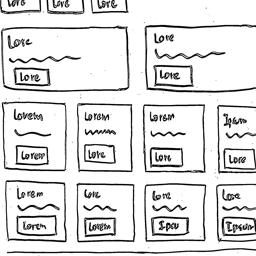 Lore Lore Lore
Lore Lore
Lore Lore
Lorem Lorem Lorem Ipsum
Lorem Lore Lore Lore
Lorem Lore Lore Lore
Lorem Lorem Ipsu Ipsum